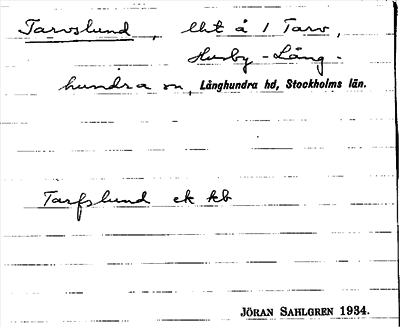 Tarvslund, lht å 1 Tarv,
Husby-Lång-
hundra sn, Långhundra hd, Stockholms län.
Tarfslund ek kb
JÖRAN SAHLGREN 1934.